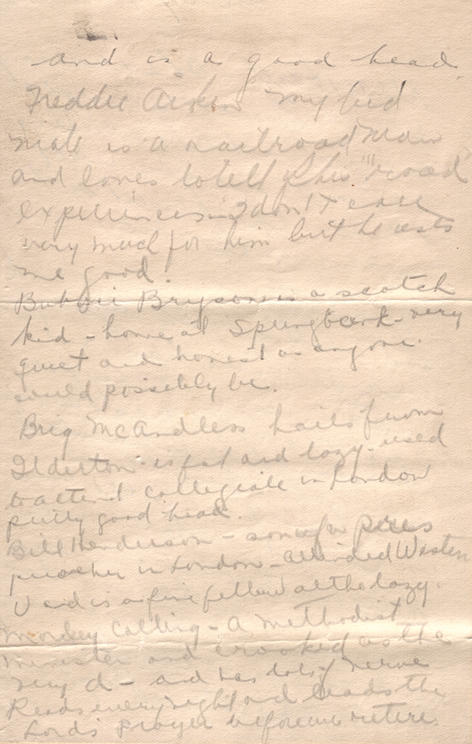 and is a good head.
Freddie Aiken my bed
mate is a railroad man
and loves to tell of his "road
experiences" I don't care
very much for him but he uses
me good.
Bryson is a scotch
kid - home at Springbank - very
quiet and honest as anyone
could possibely be.
Brig McAndless hails from
Ilderton - is fat and lazy - used
to attend collegiate in London
pretty good head.
Bill Henderson - son of a pres
preacher in London - attended Western
U and is a fine fellow altho lazy.
Morley Colling - a Methodist
minister and crooked as the
very d - and has lots of nerve
Reads every night and leads the
Lord's Prayer before we retire.